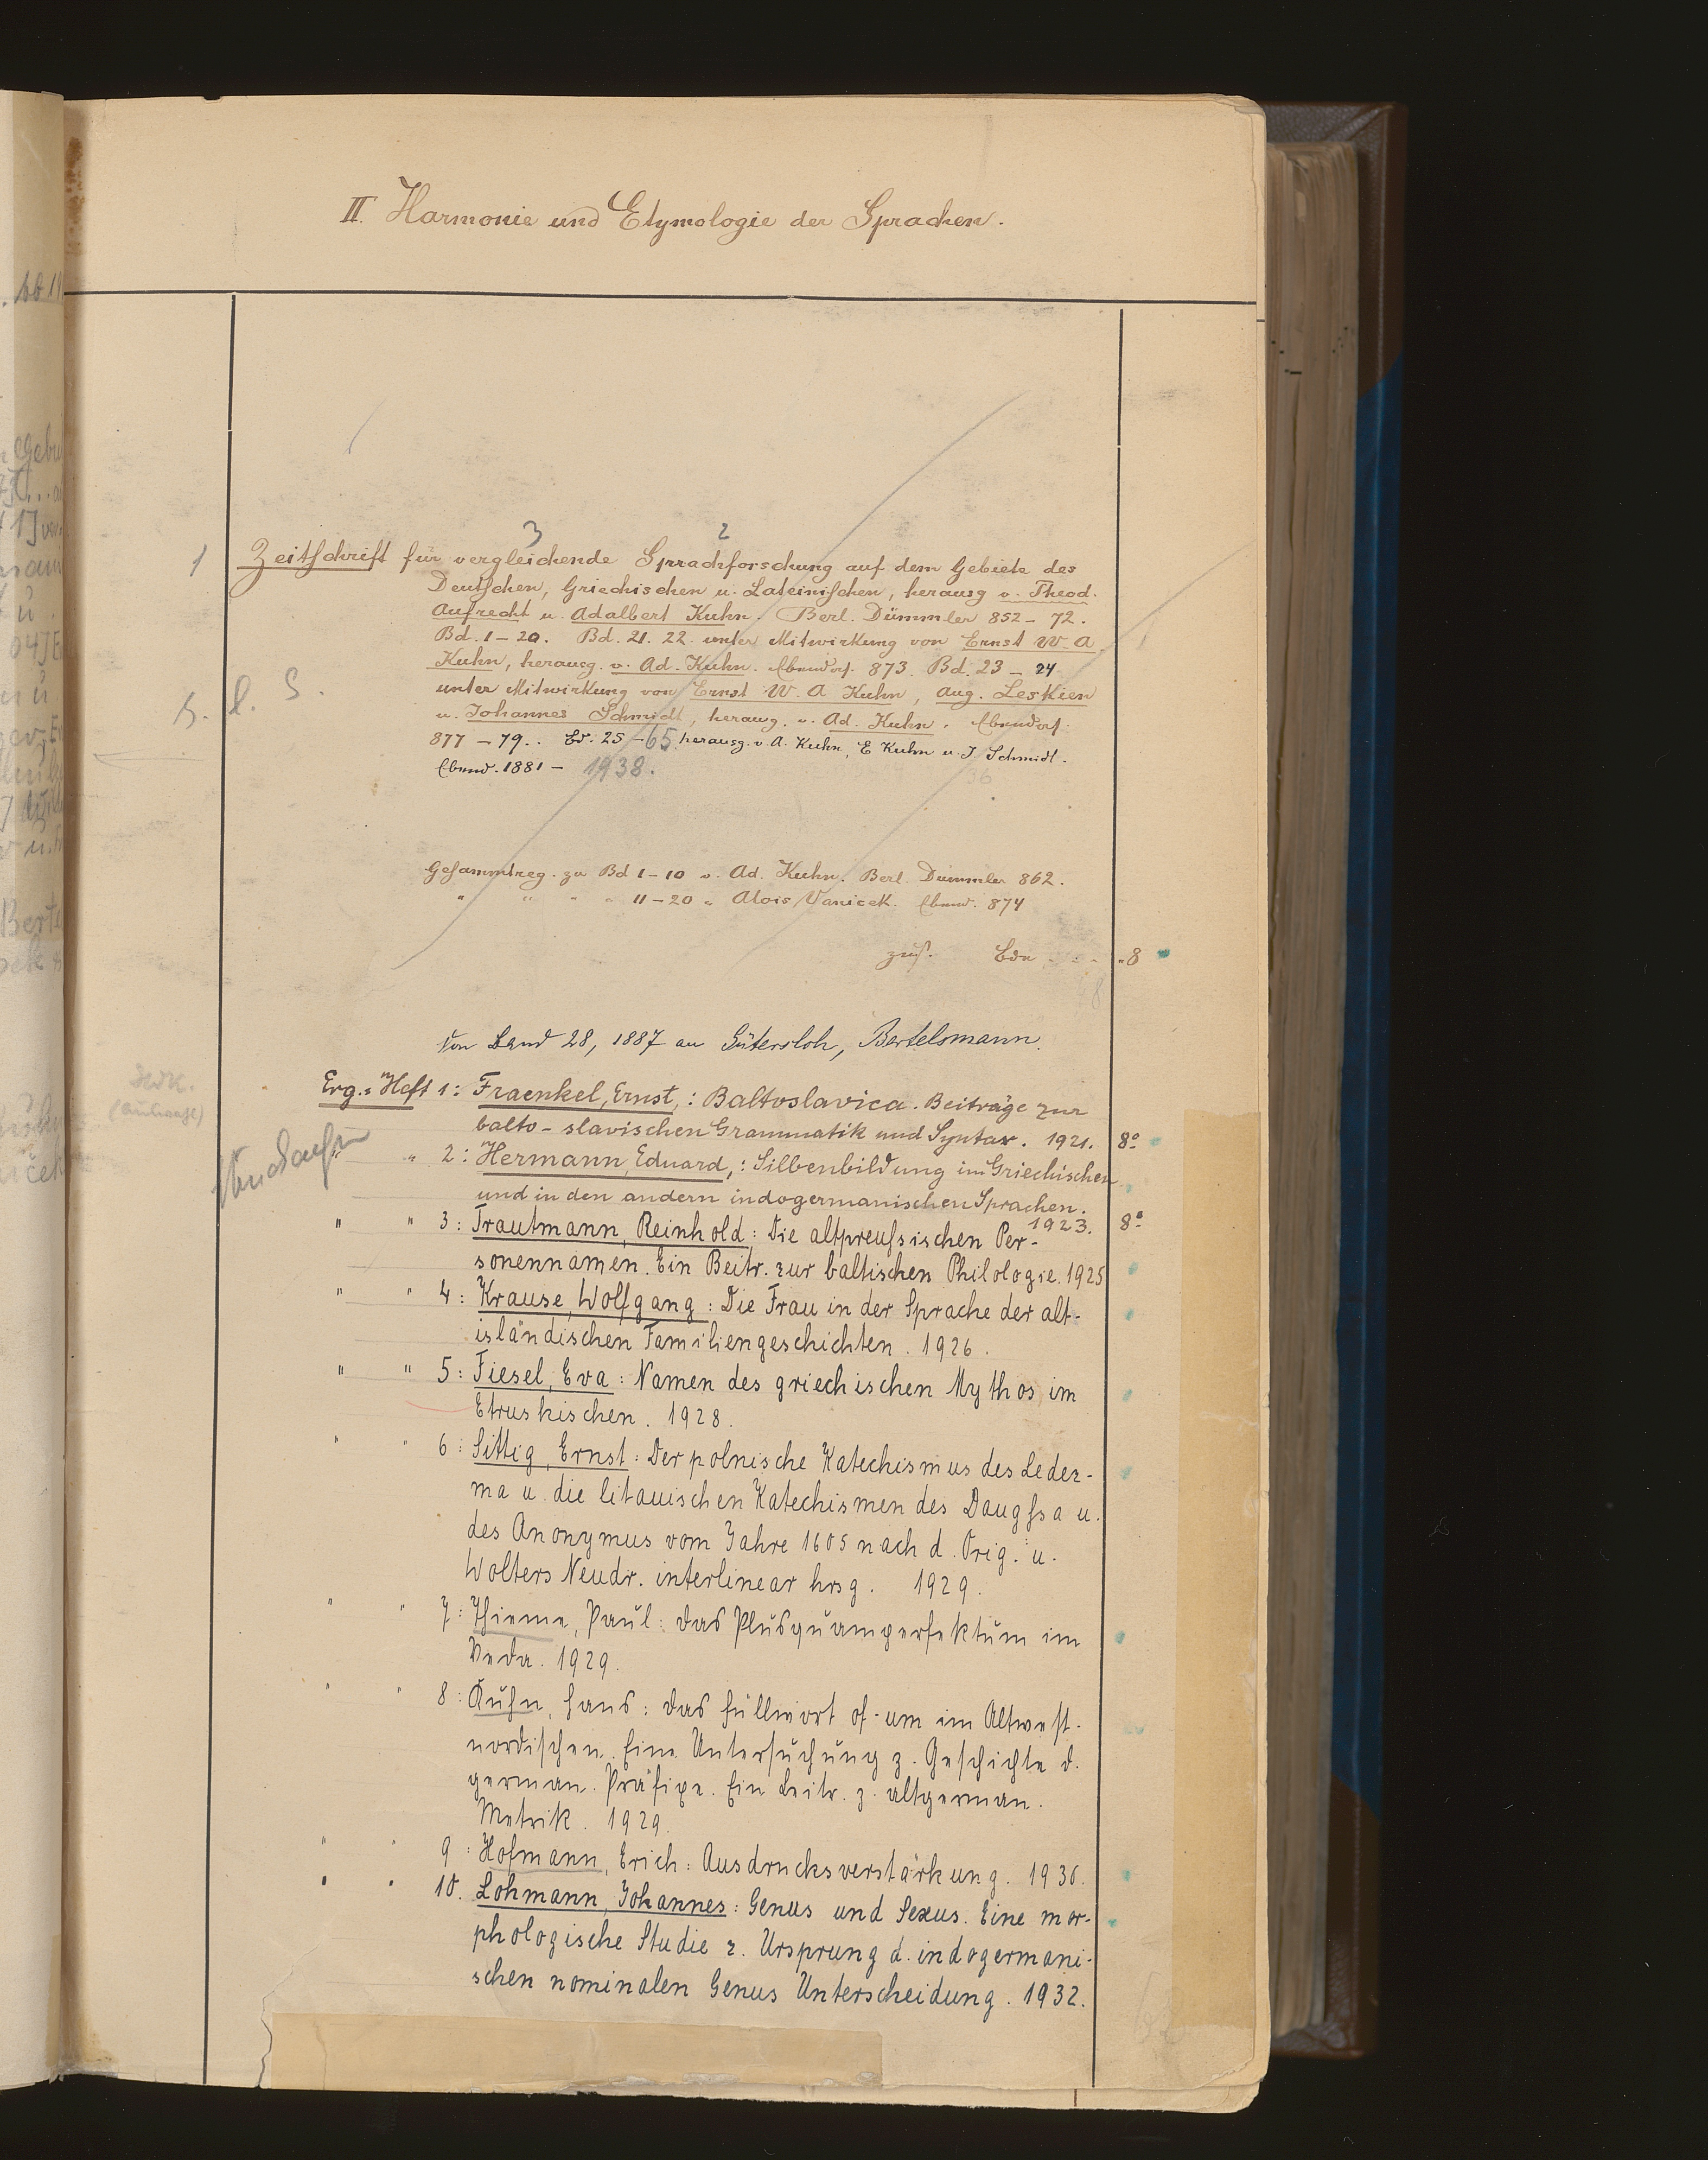 II. Harmonie und Etymologie der Sprachen.
3 2
1 Zeitschrift für vergleichende Sprachforschung auf dem Gebiete des
Deutschen, Griechischen u. Lateinischen, herausg v. Theod.
Aufrecht u. Adalbert Kuhn. Berl. Dümmler 852 - 72.
Bd. 1-20. Bd. 21. 22. unter Mitwirkung von Ernst W. A.
Kuhn, herausg. v. Ad. Kuhn. Ebendas. 873. Bd. 23 - 24
unter Mitwirkung von Ernst W. A Kuhn, Aug. Leskien
u. Johannes Schmidt, herausg. v. Ad. Kuhn. Ebendas.
877 - 79.. Bd. 25 - 65, herausg. v. A. Kuhn, E Kuhn u. J Schmidt.
Ebend. 1881 - 1938.
36
Gesammtreg. zu Bd 1-10 v. Ad. Kuhn. Berl. Dümmler 862.
" " " " 11-20 " Alois Vanicek. Ebend. 874
zus. Bde 8
Von Band 28, 1887 an Gütersloh, Bertelsmann.
Erg.-Heft 1: Fraenkel, Ernst,: Baltoslavica. Beiträge zur
balto-slavischen Grammatik und Syntax. 1921. 8°
" " 2: Hermann, Eduard,: Silbenbildung im Griechischen
und in den andern indogermanischen Sprachen.
1923. 8°
" " 3: Trautmann, Reinhold: Die altpreußsischen Per-
sonennamen. Ein Beitr. zur baltischen Philologie. 1925
" " 4: Krause, Wolfgang: Die Frau in der Sprache der alt-
isländischen Familiengeschichten. 1926.
" " 5: Fiesel, Eva: Namen des griechischen Mythos im
Etruskischen. 1928.
" " 6: Sittig, Ernst: Der polnische Katechismus des Ledez-
ma u. die litauischen Katechismen des Daugßa u.
des Anonymus vom Jahre 1605 nach d. Orig. u.
Wolters Neudr. interlinear hrsg. 1929.
" " 7: Thieme, Paul: Das Plusquamperfektum im
Veda. 1929.
" " 8: Kuhn, Hans: Das Füllwort of-um im Altwest-
nordischen. Eine Untersuchung z. Geschichte d.
german. Präfixe. Ein Beitr. z. altgerman.
Metrik. 1929.
" " 9: Hofmann, Erich: Ausdrucksverstärkung. 1930.
" " 10. Lohmann, Johannes: Genus und Sexus. Eine mor-
phologische Studie z. Ursprung d. indogermani-
schen nominalen Genus Unterscheidung. 1932.